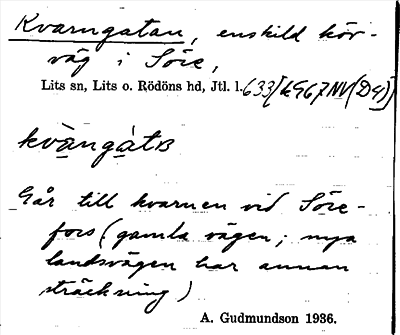 Kvarngatan, enskild kör-
väg i Söre,
Lits sn, Lits o. Rödöns hd, Jtl. l. 633[69G7NV(D4)]
kvàngàtв
Går till kvarnen vid Söre-
fors (gamla vägen; nya
landsvägen har annan
sträckning)
A. Gudmundson 1936.